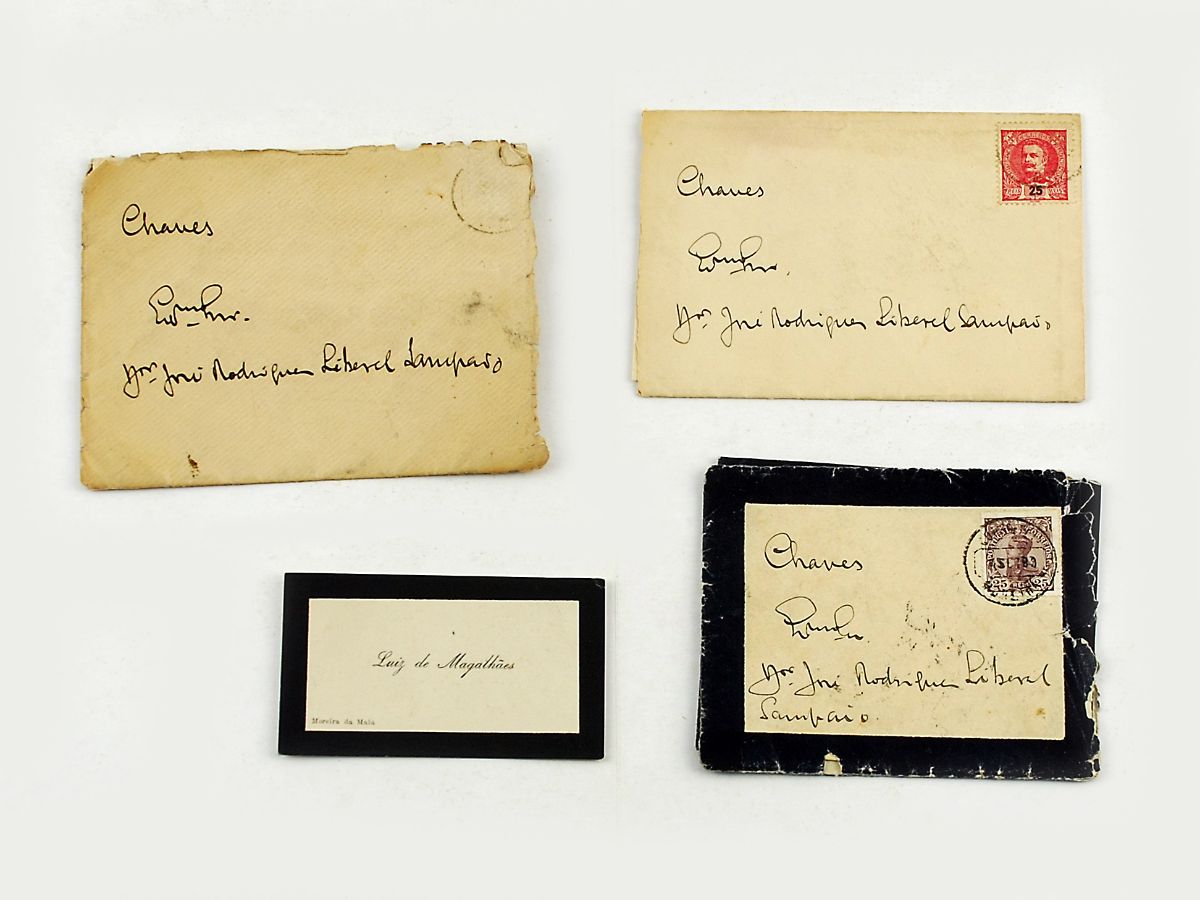 Chaves
Exmo Snr.
Dor. José Rodrigues Liberal Sampaio
Chaves
25
Exmo Snr.
Dor. José Rodrigues Liberal Sampaio
Luiz de Magalhães
Moreira da Maia
Chaves
25 25
Exmo Snr.
Dor. José Rodrigues Liberal
Sampaio